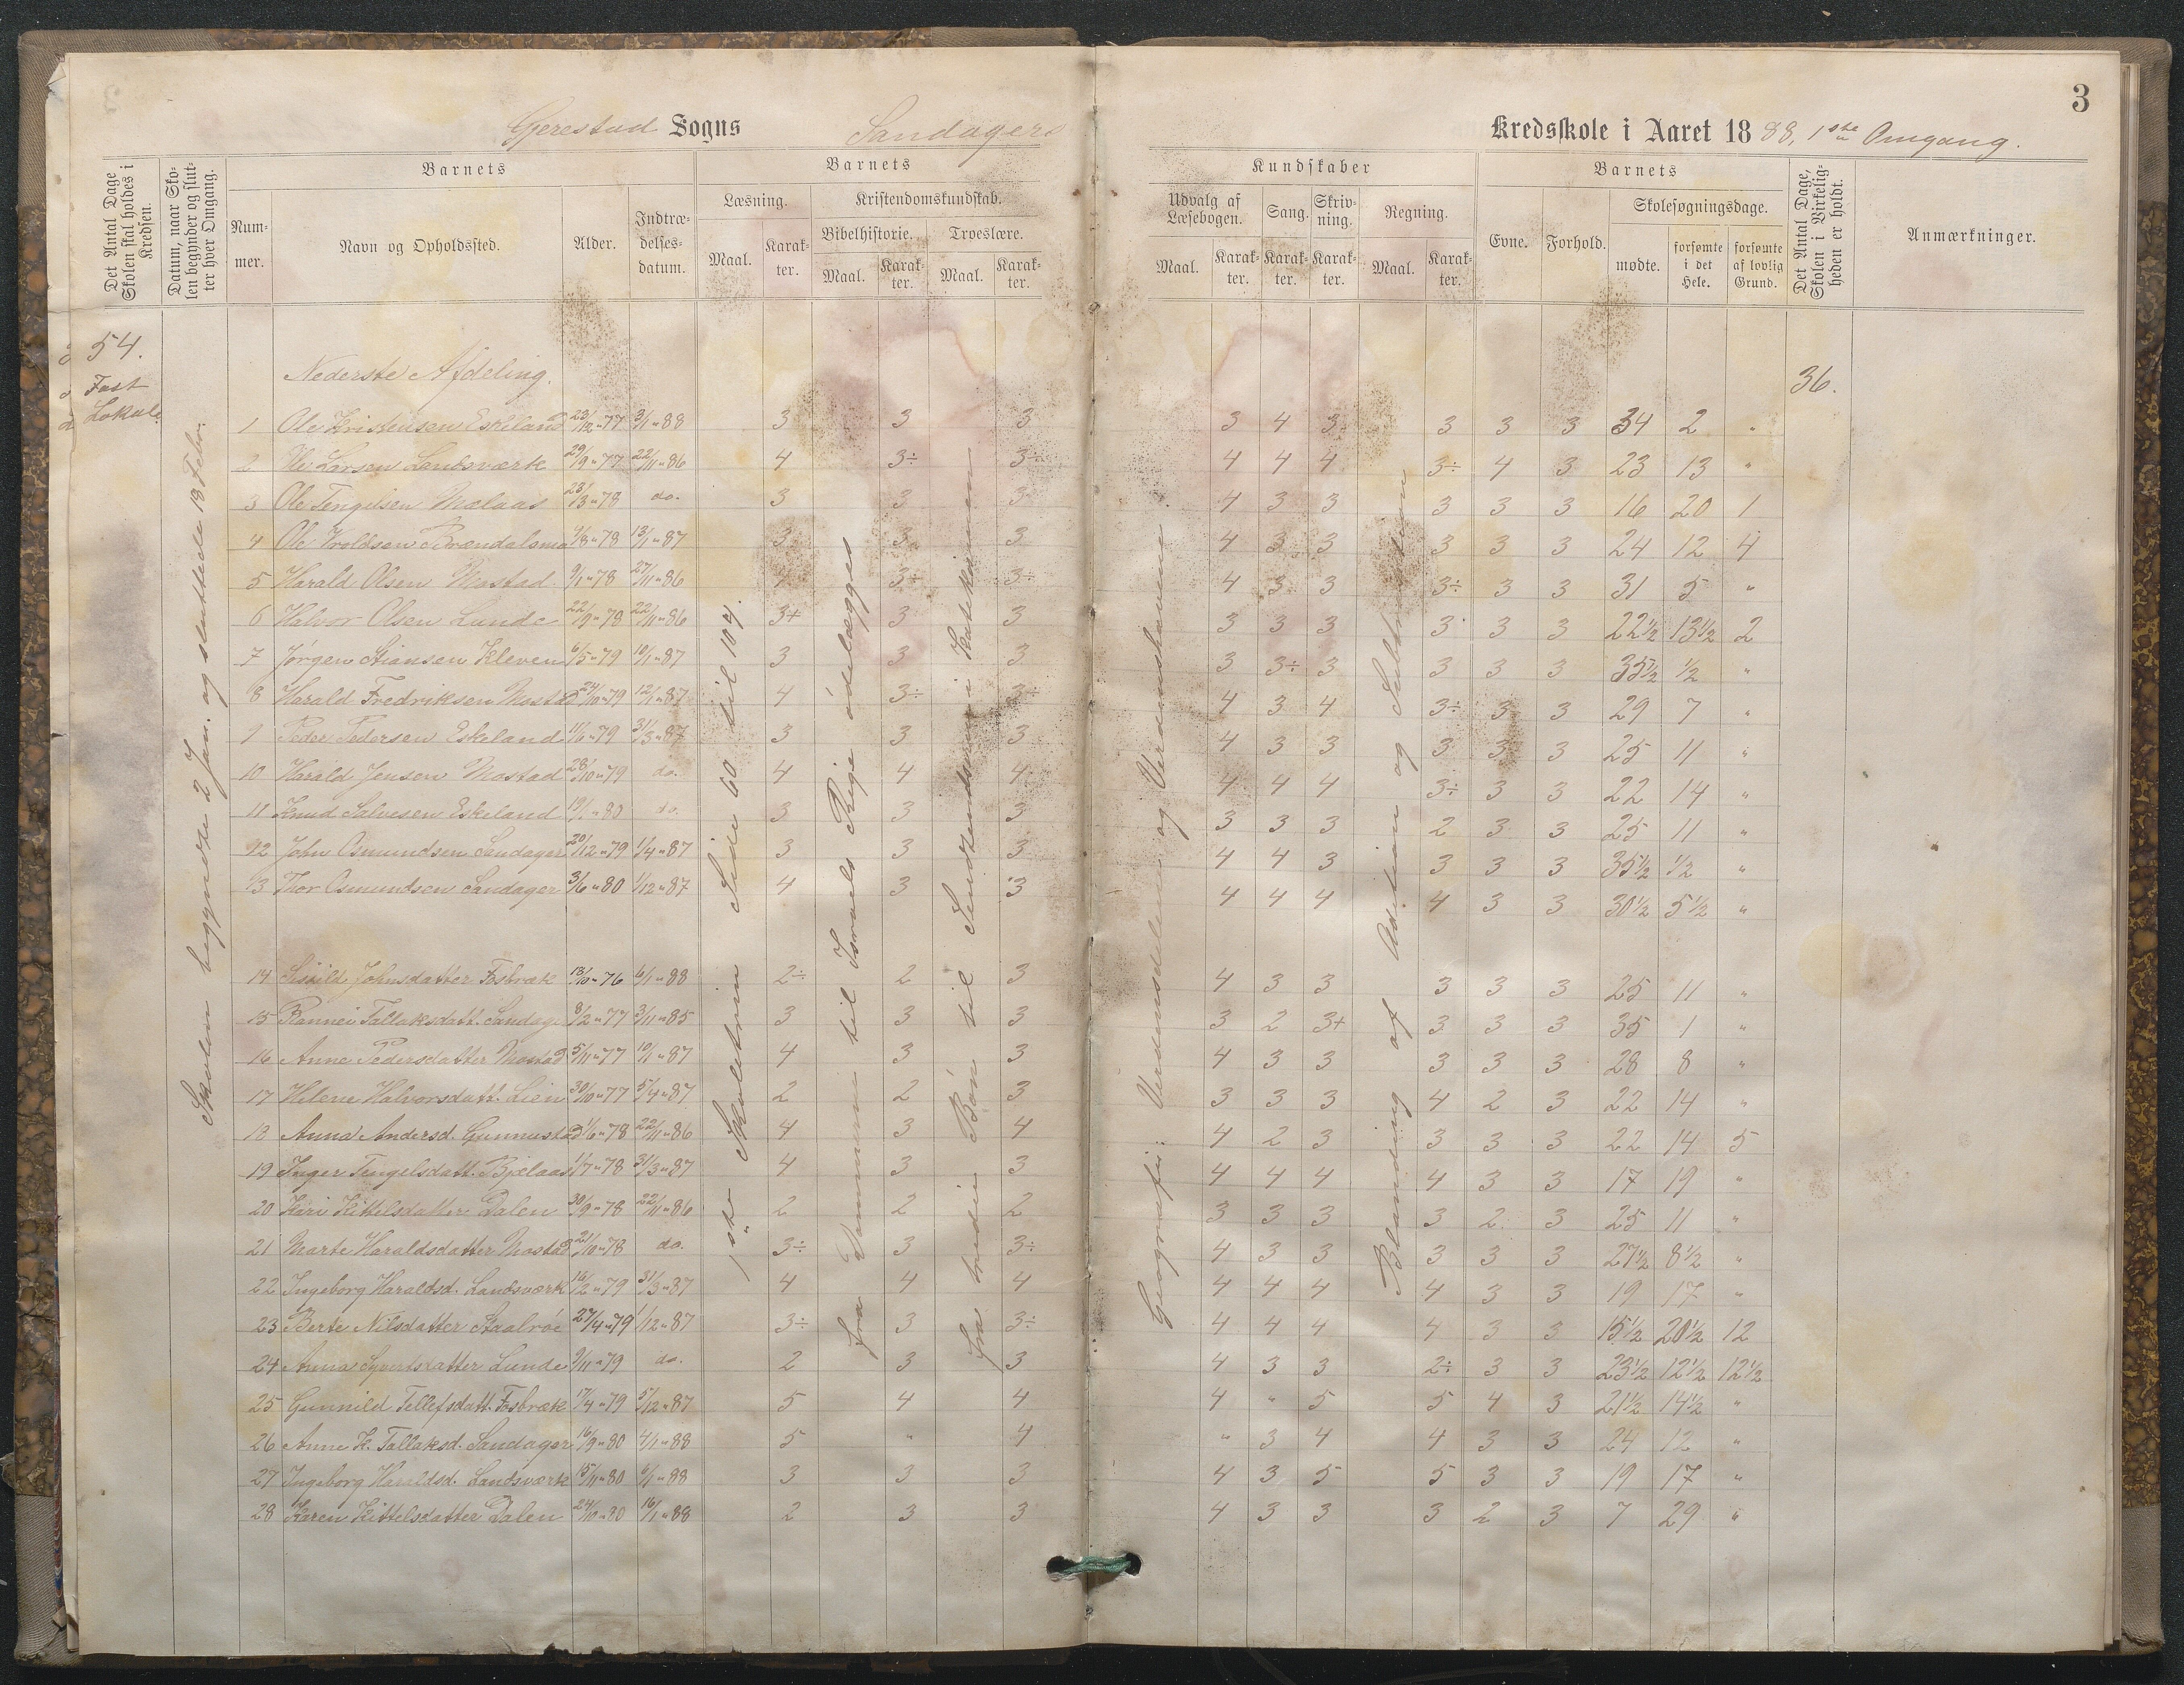 3
Gjerestad Sogns Sandagers Kredsskole i Aaret 1888, 1ste Omgang.
Det Antal Dage Skolen skal holdes i Kredsen.
Datum, naar Skolen begynder og slutter hver Omgang.
Barnets
Nummer.
Navn og Opholdssted.
Alder.
Indtrædelsesdatum.
Barnets
Læsning.
Maal.
Karakter.
Kristendomskundskab.
Bibelhistorie.
Maal.
Karakter.
Troeslære.
Maal.
Karakter.
Kundskaber
Udvalg af Læsebogen.
Maal.
Karakter.
Sang.
Karakter.
Skrivning.
Karakter.
Regning.
Maal.
Karakter.
Barnets
Evne.
Forhold.
Skolesøgningsdage.
mødte.
forsømte i det Hele.
forsømte af lovlig Grund.
Det Antal Dage, Skolen i Virkeligheden er holdt.
Anmærkninger.
54.
Fast
Lokale.
Skolen begyndte 2 Jan. og sluttede 18 Febr.
Nederste Afdeling.
36.
1ste Skoletrin Side 60 til 104.
fra Dommerne til Israels Rige ödelægges
fra tredie Bön til Sendtendsernen i Katekismen
Geografi: Verdensdelene og Verdenshavene.
Blanding af Adition og Subtraktion
1 Ole Kristensen Eskeland 23/12 "77 3/1 "88 3 3 3 3 4 3 3 3 3 34 2 "
2 Ole Larsen Landsværk 29/9 "77 22/11 "86 4 3÷ 3÷ 4 4 4 3÷ 4 3 23 13 "
3 Ole Tengelsen Mælaas 23/3 "78 do. 3 3 3 4 3 3 3 3 3 16 20 1
4 Ole Troldsen Brændalsmo 4/8 "78 13/1 "87 3 3 3 4 3 3 3 3 3 24 12 4
5 Harald Olsen Mostad 9/1 "78 27/11 "86 3÷ 3÷ 4 3 3 3÷ 3 3 31 5 "
6 Halvor Olsen Lunde 22/9 "78 22/11 "86 3+ 3 3 3 3 3 3 3 3 22½ 13½ 2
7 Jørgen Stiansen Kleven 6/5 "79 10/1 "87 3 3 3 3 3÷ 3 3 3 3 35½ ½ "
8 Harald Fredriksen Mostad 24/10 "79 12/1 "87 4 3÷ 3÷ 4 3 4 3÷ 3 3 29 7 "
9 Peder Pedersen Eskeland 11/6 "79 31/3 "87 3 3 3 4 3 3 3 3 3 25 11 "
10 Harald Jensen Mostad 28/10 "79 do. 4 4 4 4 4 4 3÷ 3 3 22 14 "
11 Knud Salvesen Eskeland 19/1 "80 do. 3 3 3 3 3 3 2 3 3 25 11 "
12 John Osmundsen Sandager 20/12 "79 1/4 "87 3 3 3 4 4 3 3 3 3 35½ ½ "
13 Thor Osmundsen Sandager 3/6 "80 1/12 "87 4 3 3 4 4 4 4 3 3 30½ 5½ "
14 Siskild Johnsdatter Fosbræk 13/10 "76 6/1 "88 2÷ 2 3 4 3 3 3 3 3 25 11 "
15 Rannei Tallaksdatt. Sandage 8/2 "77 3/11 "85 3 3 3 3 2 3+ 3 3 3 35 1 "
16 Anne Pedersdatter Mostad 5/11 "77 10/1 "87 4 3 3 4 3 3 3 3 3 28 8 "
17 Helene Halvorsdatt. Lien 30/10 "77 5/4 "87 2 2 3 3 3 3 4 2 3 22 14 "
18 Anna Andersd. Gunnustad 1/6 "78 22/11 "86 4 3 4 4 2 3 3 3 3 22 14 5
19 Inger Tengelsdatt. Bjelaas 1/7 "78 31/3 "87 4 3 3 4 4 4 4 3 3 17 19 "
20 Kari Kittelsdatter Dalen 30/9 "78 22/11 "86 2 2 2 3 3 3 3 2 3 25 11 "
21 Marte Haraldsdatter Mostad 21/10 "78 do. 3÷ 3 3÷ 4 3 3 3 3 3 27½ 8½ "
22 Ingeborg Haraldsd. Landsværk 16/2 "79 31/3 "87 4 4 4 4 4 4 4 3 3 19 17 "
23 Berte Nilsdatter Staalröe 27/4 "79 1/12 "87 3÷ 3 3÷ 4 4 4 4 3 3 15½ 20½ 12
24 Anna Syvertsdatter Lunde 9/11 "79 do. 2 3 3 4 3 3 2÷ 3 3 23½ 12½ 12½
25 Gunnild Tellefsdatt. Fosbræk 17/4 "79 5/12 "87 5 4 4 4 " 5 5 4 3 21½ 14½ "
26 Anne K. Tallaksd. Sandager 16/9 "80 4/1 "88 5 " 4 " 3 4 4 3 3 24 12 "
27 Ingeborg Haraldsd. Landsværk 15/11 "80 6/1 "88 3 3 3 4 3 5 5 3 3 19 17 "
28 Karen Kittelsdatter Dalen 24/10 "80 16/1 "88 2 3 3 4 3 3 3 2 3 7 29 "